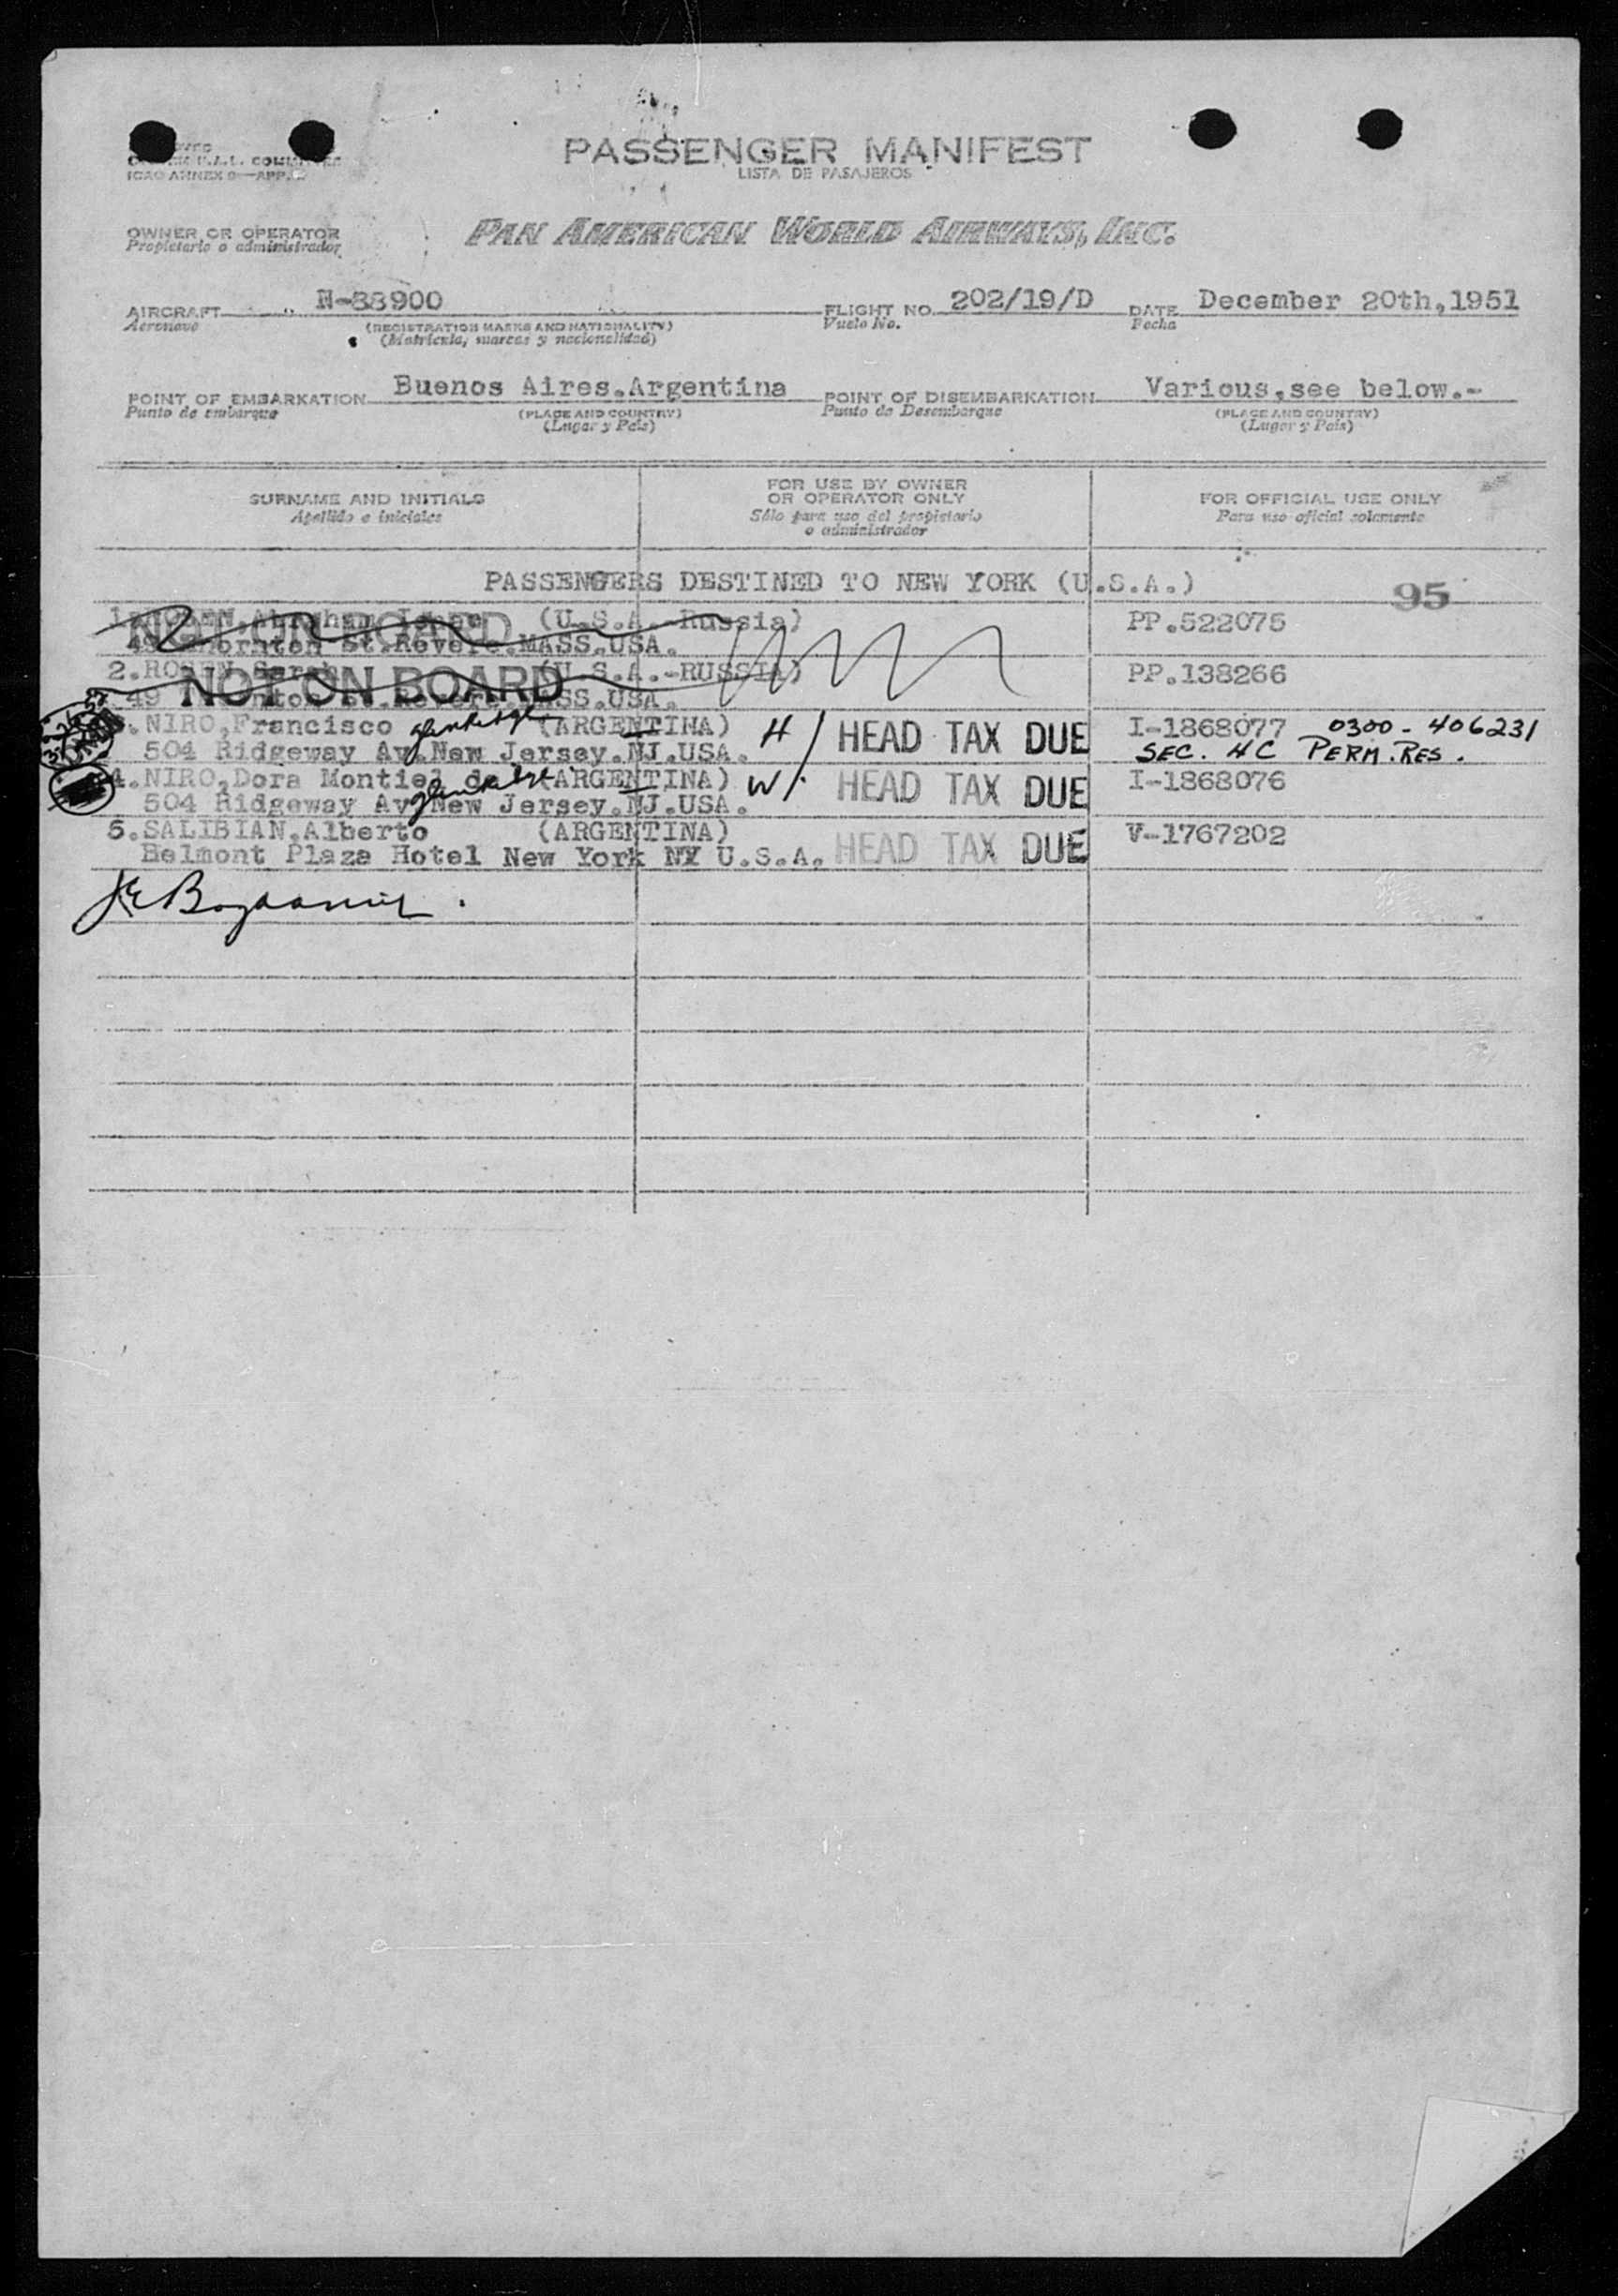 PASSENGER MANIFEST
LISTA DE PASAJEROS
ICAO ANNEX 9—APP.
OWNER OR OPERATOR
Propietario o administrador
PAN AMERICAN WORLD AIRWAYS, INC.
AIRCRAFT N-88900 FLIGHT NO. 202/19/D DATE December 20th,1951
Aeronave (REGISTRATION MARKS AND NATIONALITY) Vuelo No. Fecha
(Matricula, marcas y nacionalidad)
POINT OF EMBARKATION Buenos Aires.Argentina POINT OF DISEMBARKATION Various,see below.-
Punto de embarque (PLACE AND COUNTRY) Punto de Desembarque (PLACE AND COUNTRY)
(Lugar y Pais) (Lugar y Pais)
SURNAME AND INITIALS FOR USE BY OWNER OR OPERATOR ONLY FOR OFFICIAL USE ONLY
Apellido e iniciales Sólo para uso del propietario o administrador Para uso oficial solamente
PASSENGERS DESTINED TO NEW YORK (U.S.A.)
95
1. ROSEN,Abraham (U.S.A.-Russia) PP.522075
NOT ON BOARD
49 Thornton St.Revere.MASS.USA.
2.ROSEN, Sarah (U.S.A.-RUSSIA) PP.138266
NOT ON BOARD
49 Thornton St.Revere.MASS.USA.
3.NIRO,Francisco (ARGENTINA) H/ HEAD TAX DUE I-1868077 0300-406231
504 Ridgeway Av.New Jersey.NJ.USA. SEC. 4C PERM.RES.
4.NIRO,Dora Montiel de (ARGENTINA) W/ HEAD TAX DUE I-1868076
504 Ridgeway Av.New Jersey.NJ.USA.
5.SALIBIAN.Alberto (ARGENTINA) HEAD TAX DUE V-1767202
Belmont Plaza Hotel New York NY U.S.A.